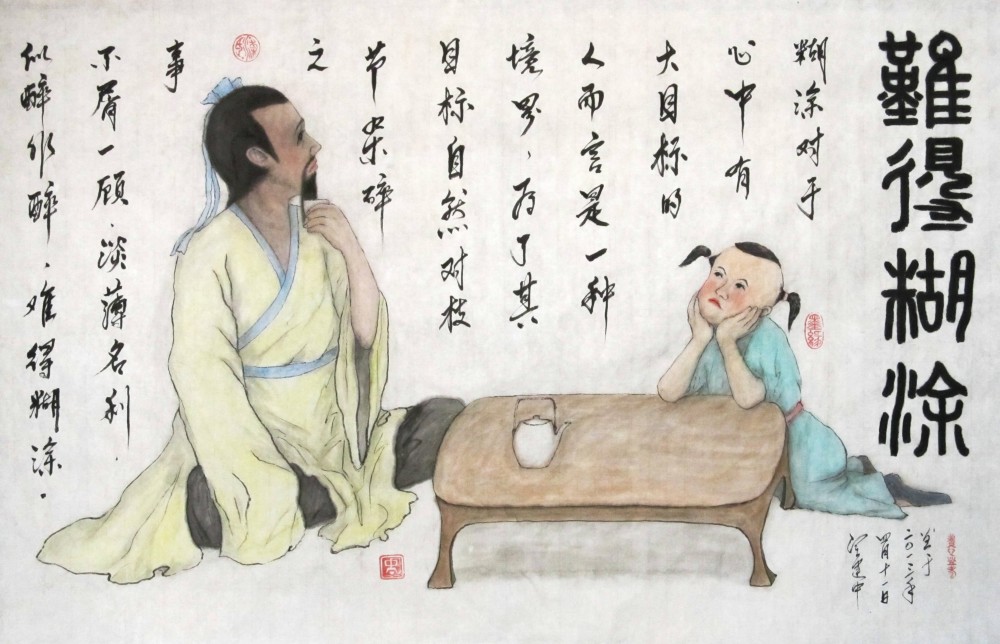 難得糊涂
糊涂对于
心中有
大目标的
人而言是一种
境界，为了其
目标自然对枝
节柴碎
之
事
不屑一顾，淡薄名利，
似醉非醉，难得糊涂。
二〇一三年
四月十一日